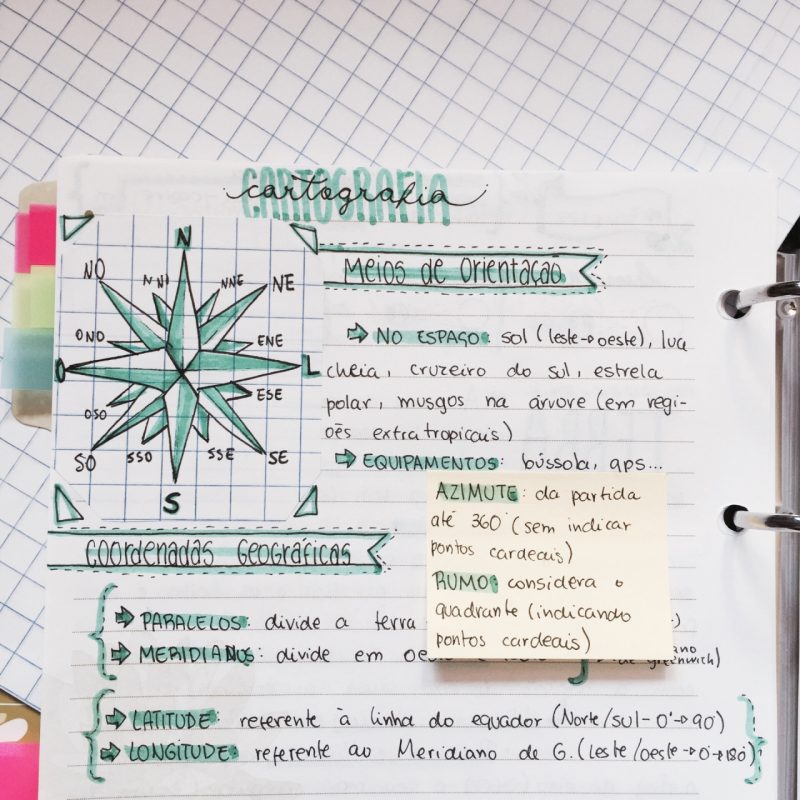 cartografia
CARTOGRAFIA
N
NO
NNE
NE
ONO
ENE
O
L
OSO
ESE
SO
SSO
SSE
SE
S
Meios de Orientação
NO ESPAÇO: sol (leste→oeste), lua
cheia, cruzeiro do sul, estrela
polar, musgos na árvore (em regi-
ões extratropicais)
EQUIPAMENTOS: bússola, gps...
AZIMUTE: da partida
até 360° (sem indicar
pontos cardeais)
RUMO: considera o
quadrante (indicando
pontos cardeais)
Coordenadas Geográficas
PARALELOS: divide a terra
MERIDIANOS: divide em
de greenwich)
LATITUDE: referente à linha do equador (Norte/sul-0°→90°)
LONGITUDE: referente ao Meridiano de G. (leste/oeste→0°→180°)